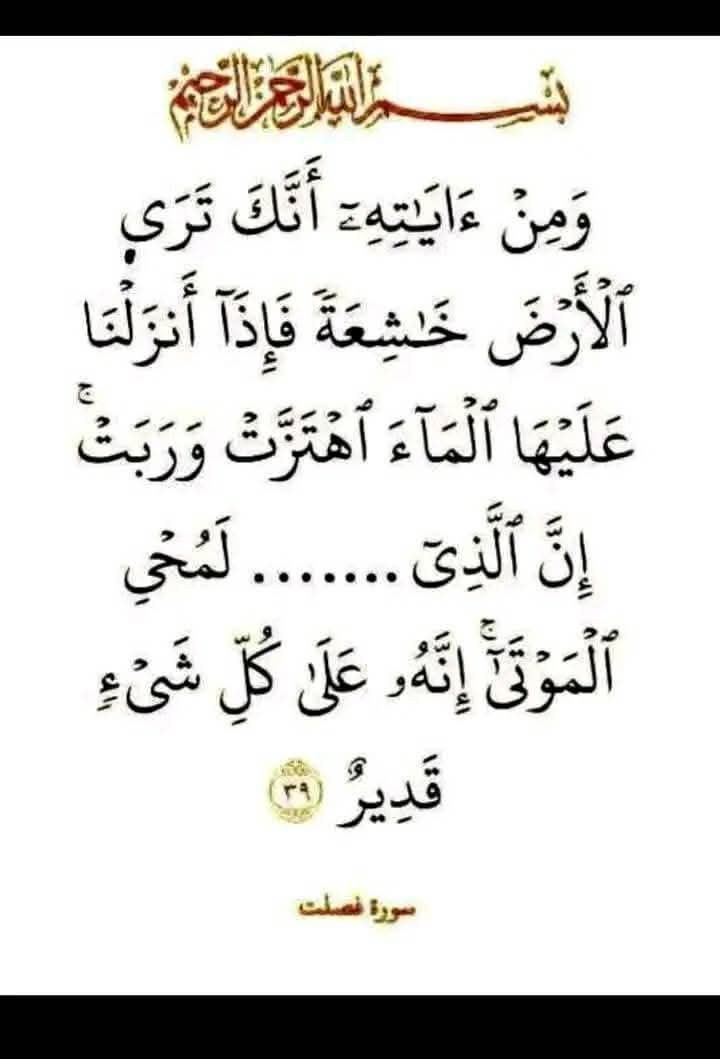 بِسْمِ اللَّهِ الرَّحْمَٰنِ الرَّحِيمِ
وَمِنْ ءَايَـٰتِهِۦٓ أَنَّكَ تَرَى
ٱلْأَرْضَ خَـٰشِعَةً فَإِذَآ أَنزَلْنَا
عَلَيْهَا ٱلْمَآءَ ٱهْتَزَّتْ وَرَبَتْ ۚ
إِنَّ ٱلَّذِىٓ ....... لَمُحْىِ
ٱلْمَوْتَىٰٓ ۚ إِنَّهُۥ عَلَىٰ كُلِّ شَىْءٍ
قَدِيرٌ ٣٩
سورة فصلت